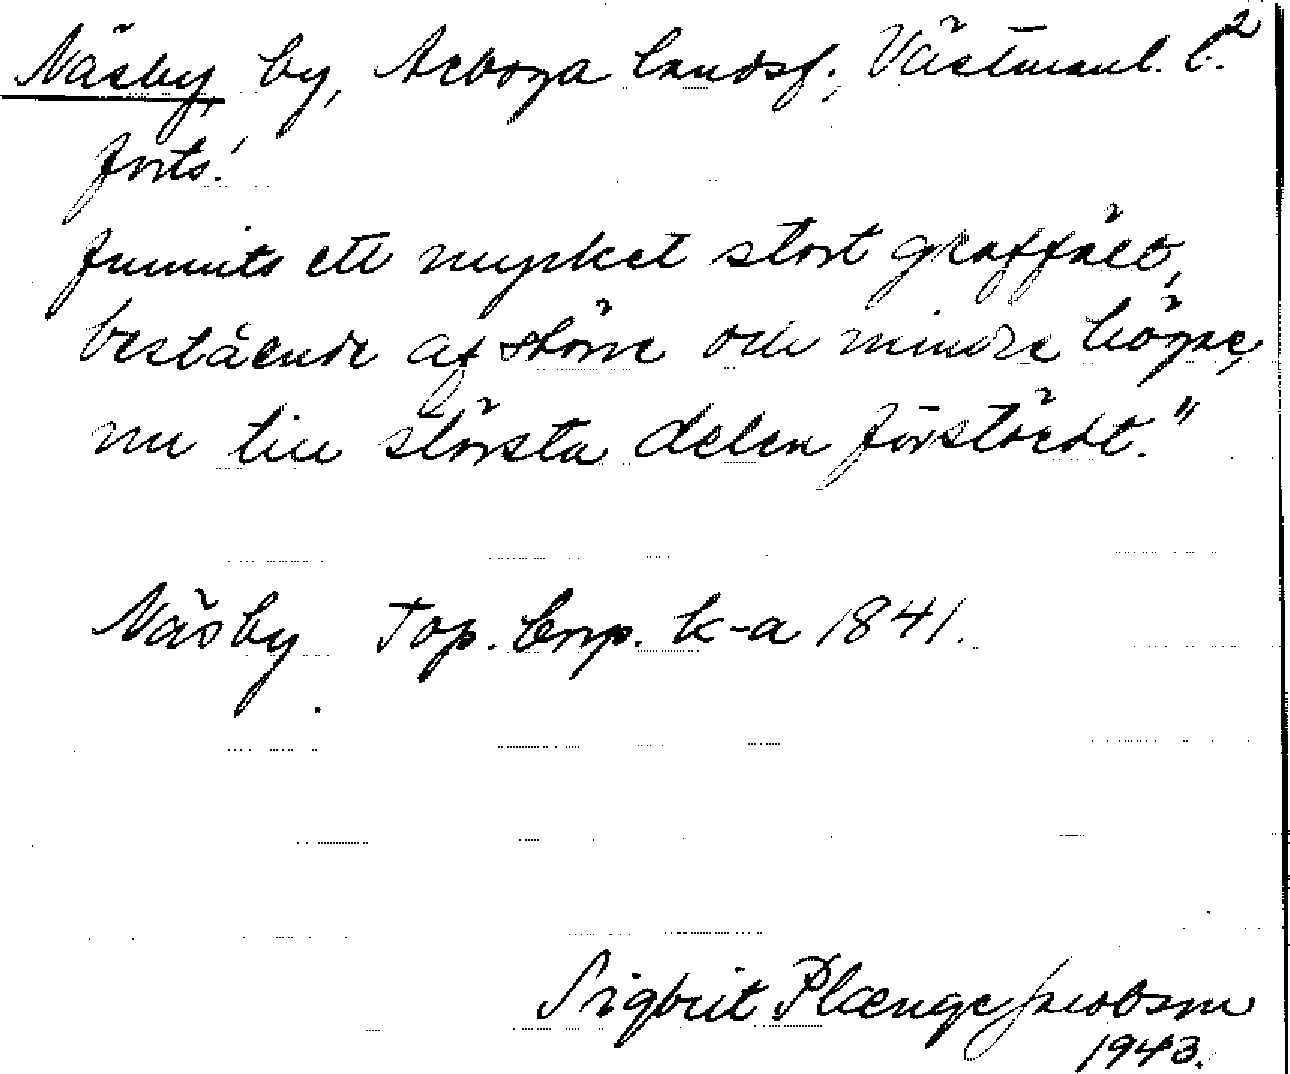 Näsby, by, Arboga landsf., Västmanl. l. 2
forts.
funnits ett mycket stort graffält,
bestående af större och mindre högar,
nu till största delen förstördt."
Näsby Top. Corp. k-a 1841.
Sigbrit Plænge Jacobson
1943.